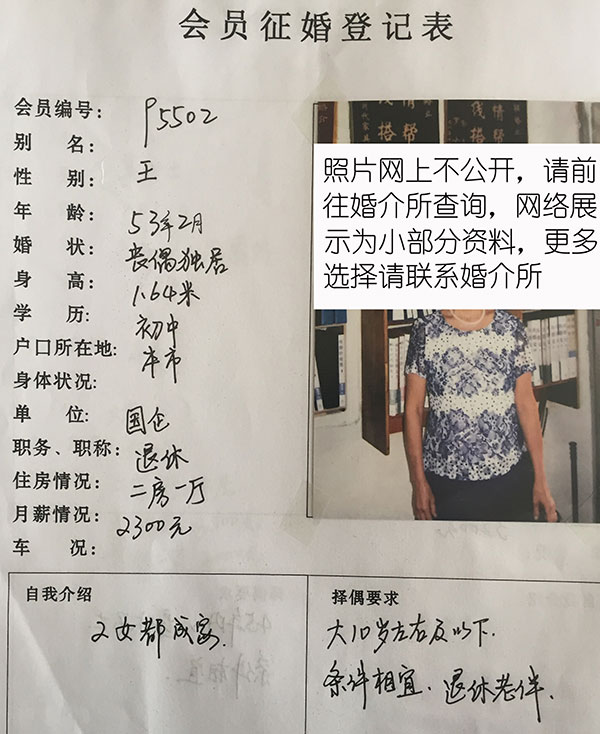 会员征婚登记表
会员编号: P5502
别 名:
性 别: 王
年 龄: 53年2月
婚 状: 丧偶独居
身 高: 1.64米
学 历: 初中
户口所在地: 本市
身体状况:
单 位: 国企
职务、职称: 退休
住房情况: 二房一厅
月薪情况: 2300元
车 况:
照片网上不公开，请前
往婚介所查询，网络展
示为小部分资料，更多
选择请联系婚介所
自我介绍
2女都成家.
择偶要求
大10岁左右及以下.
条件相宜. 退休老伴.